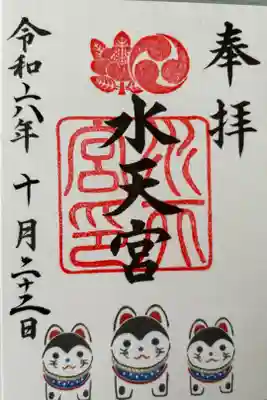 奉拝
水天宮
水天
宮印
令和六年 十月二十三日